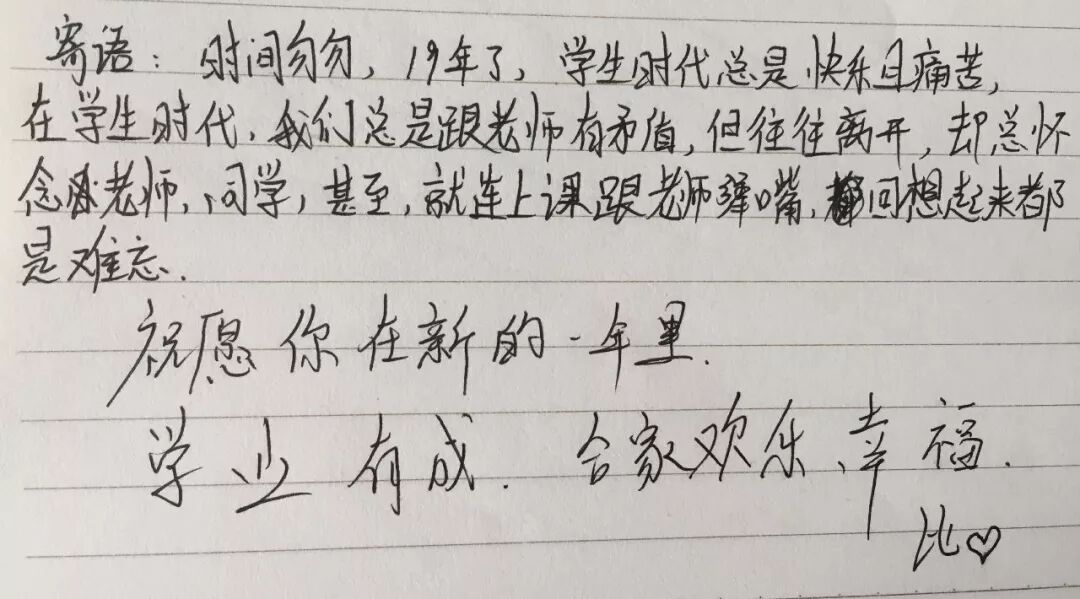 寄语：时间匆匆，19年了，学生时代总是快乐且痛苦，
在学生时代，我们总是跟老师有矛盾，但往往离开，却总怀
念老师，同学，甚至，就连上课跟老师绊嘴，回想起来都
是难忘．
祝愿你在新的一年里．
学业有成．合家欢乐、幸福．
比♡